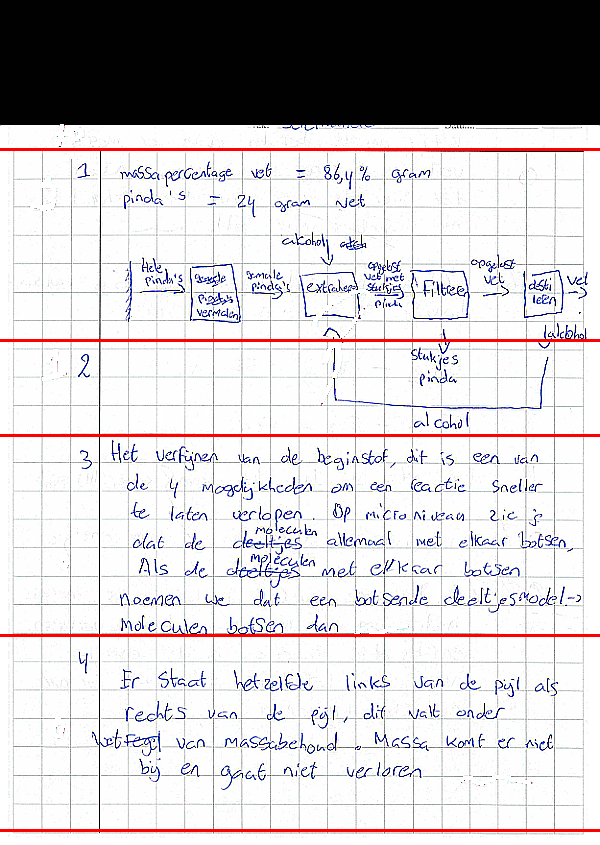 1 massapercentage vet = 86,4% gram
pinda's = 24 gram vet
alcohol
Hele pinda's
pinda's vermalen
gemale pinda's
extraheren
opgelost vet met stukjes pinda
Filtree
opgelost vet
desti leen
vet
stukjes pinda
alcohol
alcohol
2
3 Het verfijnen van de beginstof, dit is een van
de 4 mogelijkheden om een reactie sneller
te laten verlopen. Op micro niveau zie je
dat de moleculen allemaal met elkaar botsen,
Als de moleculen met elkaar botsen
noemen we dat een botsende deeltjesmodel->
moleculen botsen dan
4 Er staat hetzelfde links van de pijl als
rechts van de pijl, dit valt onder
Wet van massabehoud. Massa komt er niet
bij en gaat niet verloren